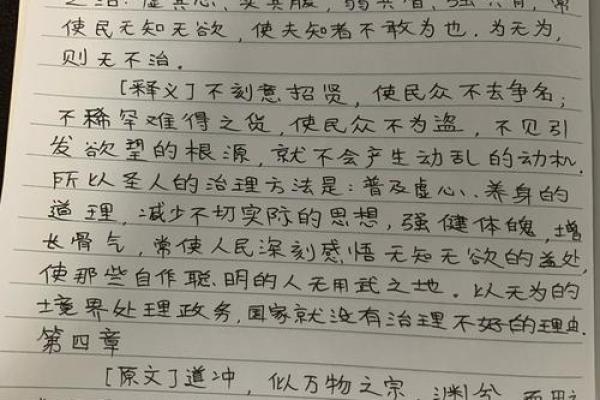 之治：虚其心，实其腹，弱其智，强其骨，常
使民无知无欲，使夫知者不敢为也，为无为，
则无不治。
[释义]不刻意招贤，使民众不去争名；
不稀罕难得之货，使民众不为盗，不见引
发欲望的根源，就不会产生动乱的动机。
所以圣人的治理方法是：普及虚心、养身的
道理，减少不切实际的思想，强健体魄，增
长骨气，常使人民深刻感悟无知无欲的益处，
使那些自作聪明的人无用武之地。以无为的
境界处理政务，国家就没有治理不好的理由。
第四章
[原文]道冲，似万物之宗，渊兮，而用之